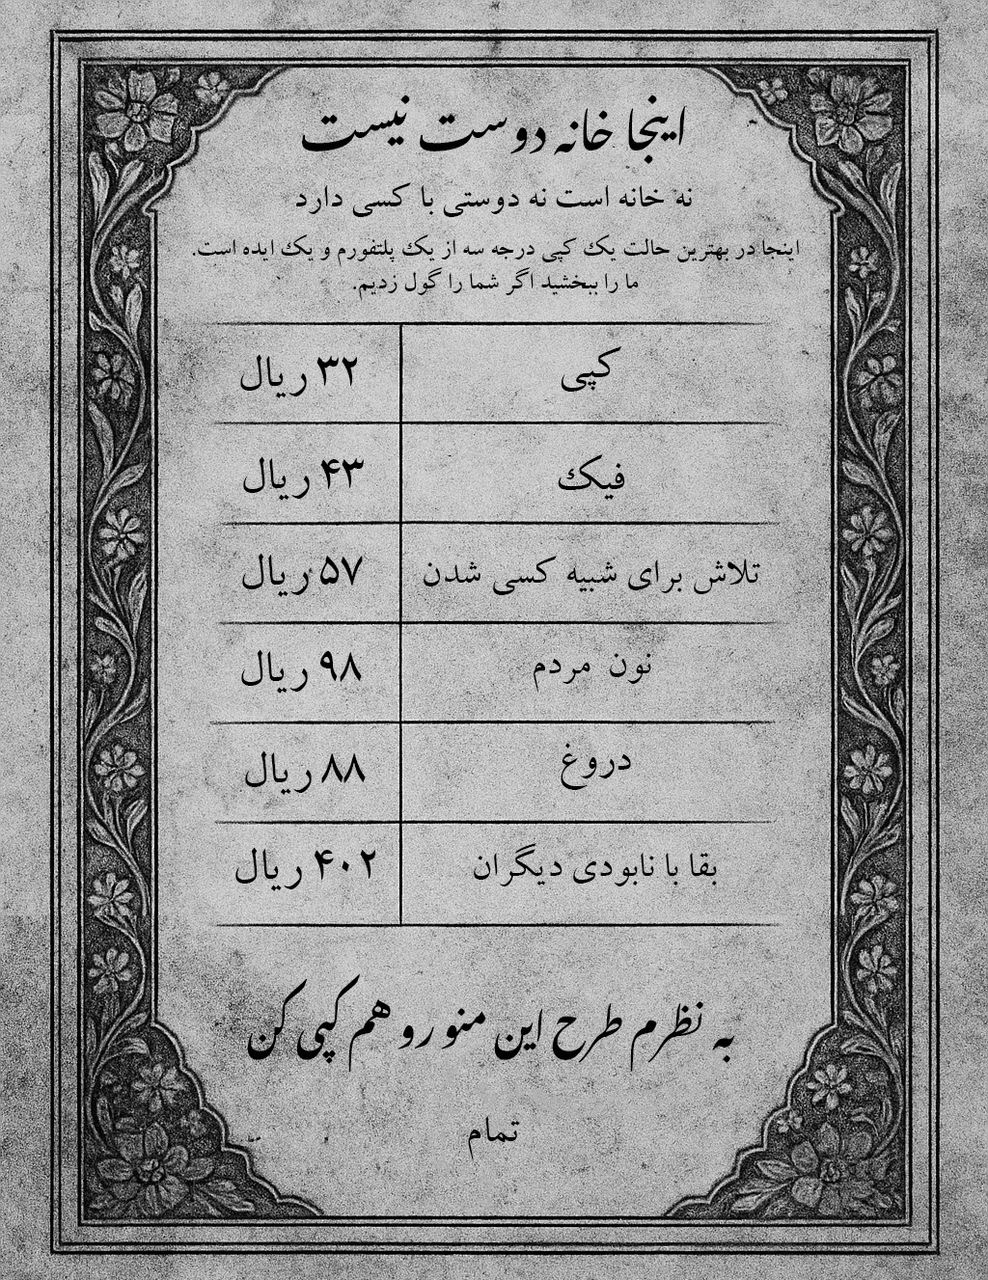 اینجا خانه دوست نیست
نه خانه است نه دوستی با کسی دارد
اینجا در بهترین حالت یک کپی درجه سه از یک پلتفورم و یک ایده است.
ما را ببخشید اگر شما را گول زدیم.
کپی ۳۲ ریال
فیک ۴۳ ریال
تلاش برای شبیه کسی شدن ۵۷ ریال
نون مردم ۹۸ ریال
دروغ ۸۸ ریال
بقا با نابودی دیگران ۴۰۲ ریال
به نظرم طرح این منو رو هم کپی کن
تمام